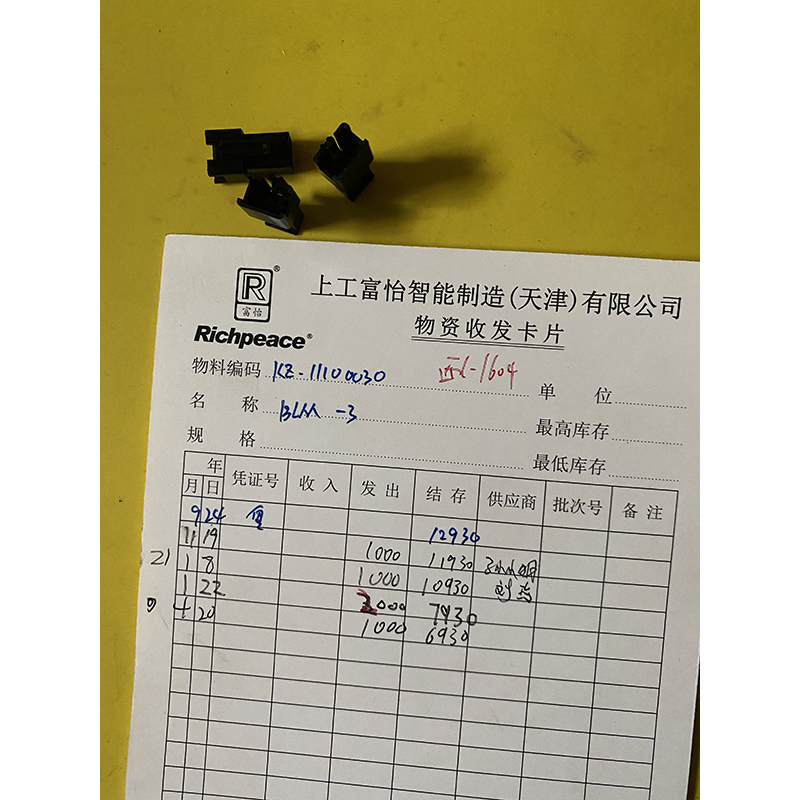 R®
富怡
Richpeace®
上工富怡智能制造(天津)有限公司
物资收发卡片
物料编码 KZ-11100030 1604 单 位
名 称 BLM -3 最高库存
规 格 最低库存
年 凭证号 收入 发出 结存 供应商 批次号 备注
月 日
9 24 12930
11 19 1000 11930
21 1 8 1000 10930
1 22 3000 7930
4 20 1000 6930